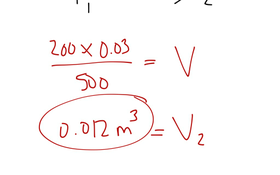 200 × 0.03
500
= V
0.012 m³ = V₂